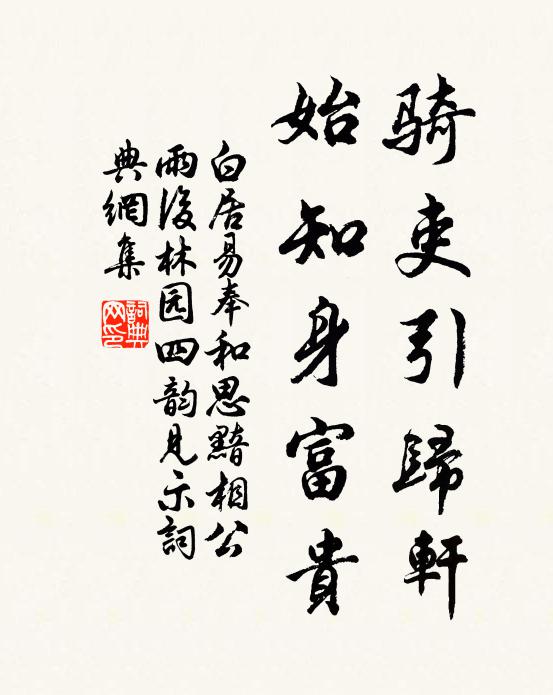 骑吏引歸軒
始知身富貴
白居易奉和思黯相公
雨後林园四韵見示詞
典網集
詞典網印